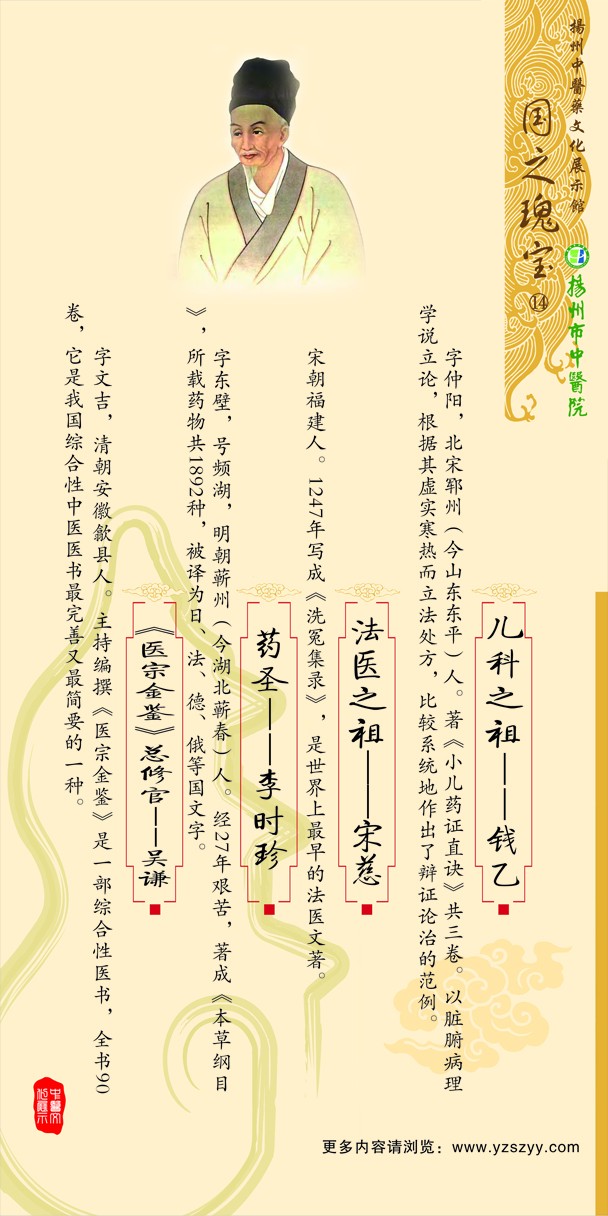 揚州中醫藥文化展示館
国之瑰宝⑭
揚州市中醫院
儿科之祖——钱乙
字仲阳，北宋郓州（今山东东平）人。著《小儿药证直诀》共三卷。以脏腑病理
学说立论，根据其虚实寒热而立法处方，比较系统地作出了辩证论治的范例。
法医之祖——宋慈
宋朝福建人。1247年写成《洗冤集录》，是世界上最早的法医文著。
药圣——李时珍
字东壁，号频湖，明朝蕲州（今湖北蕲春）人。经27年艰苦，著成《本草纲目
》，所载药物共1892种，被译为日、法、德、俄等国文字。
《医宗金鉴》总修官——吴谦
字文吉，清朝安徽歙县人。主持编撰《医宗金鉴》是一部综合性医书，全书90
卷，它是我国综合性中医医书最完善又最简要的一种。
更多内容请浏览：www.yzszyy.com